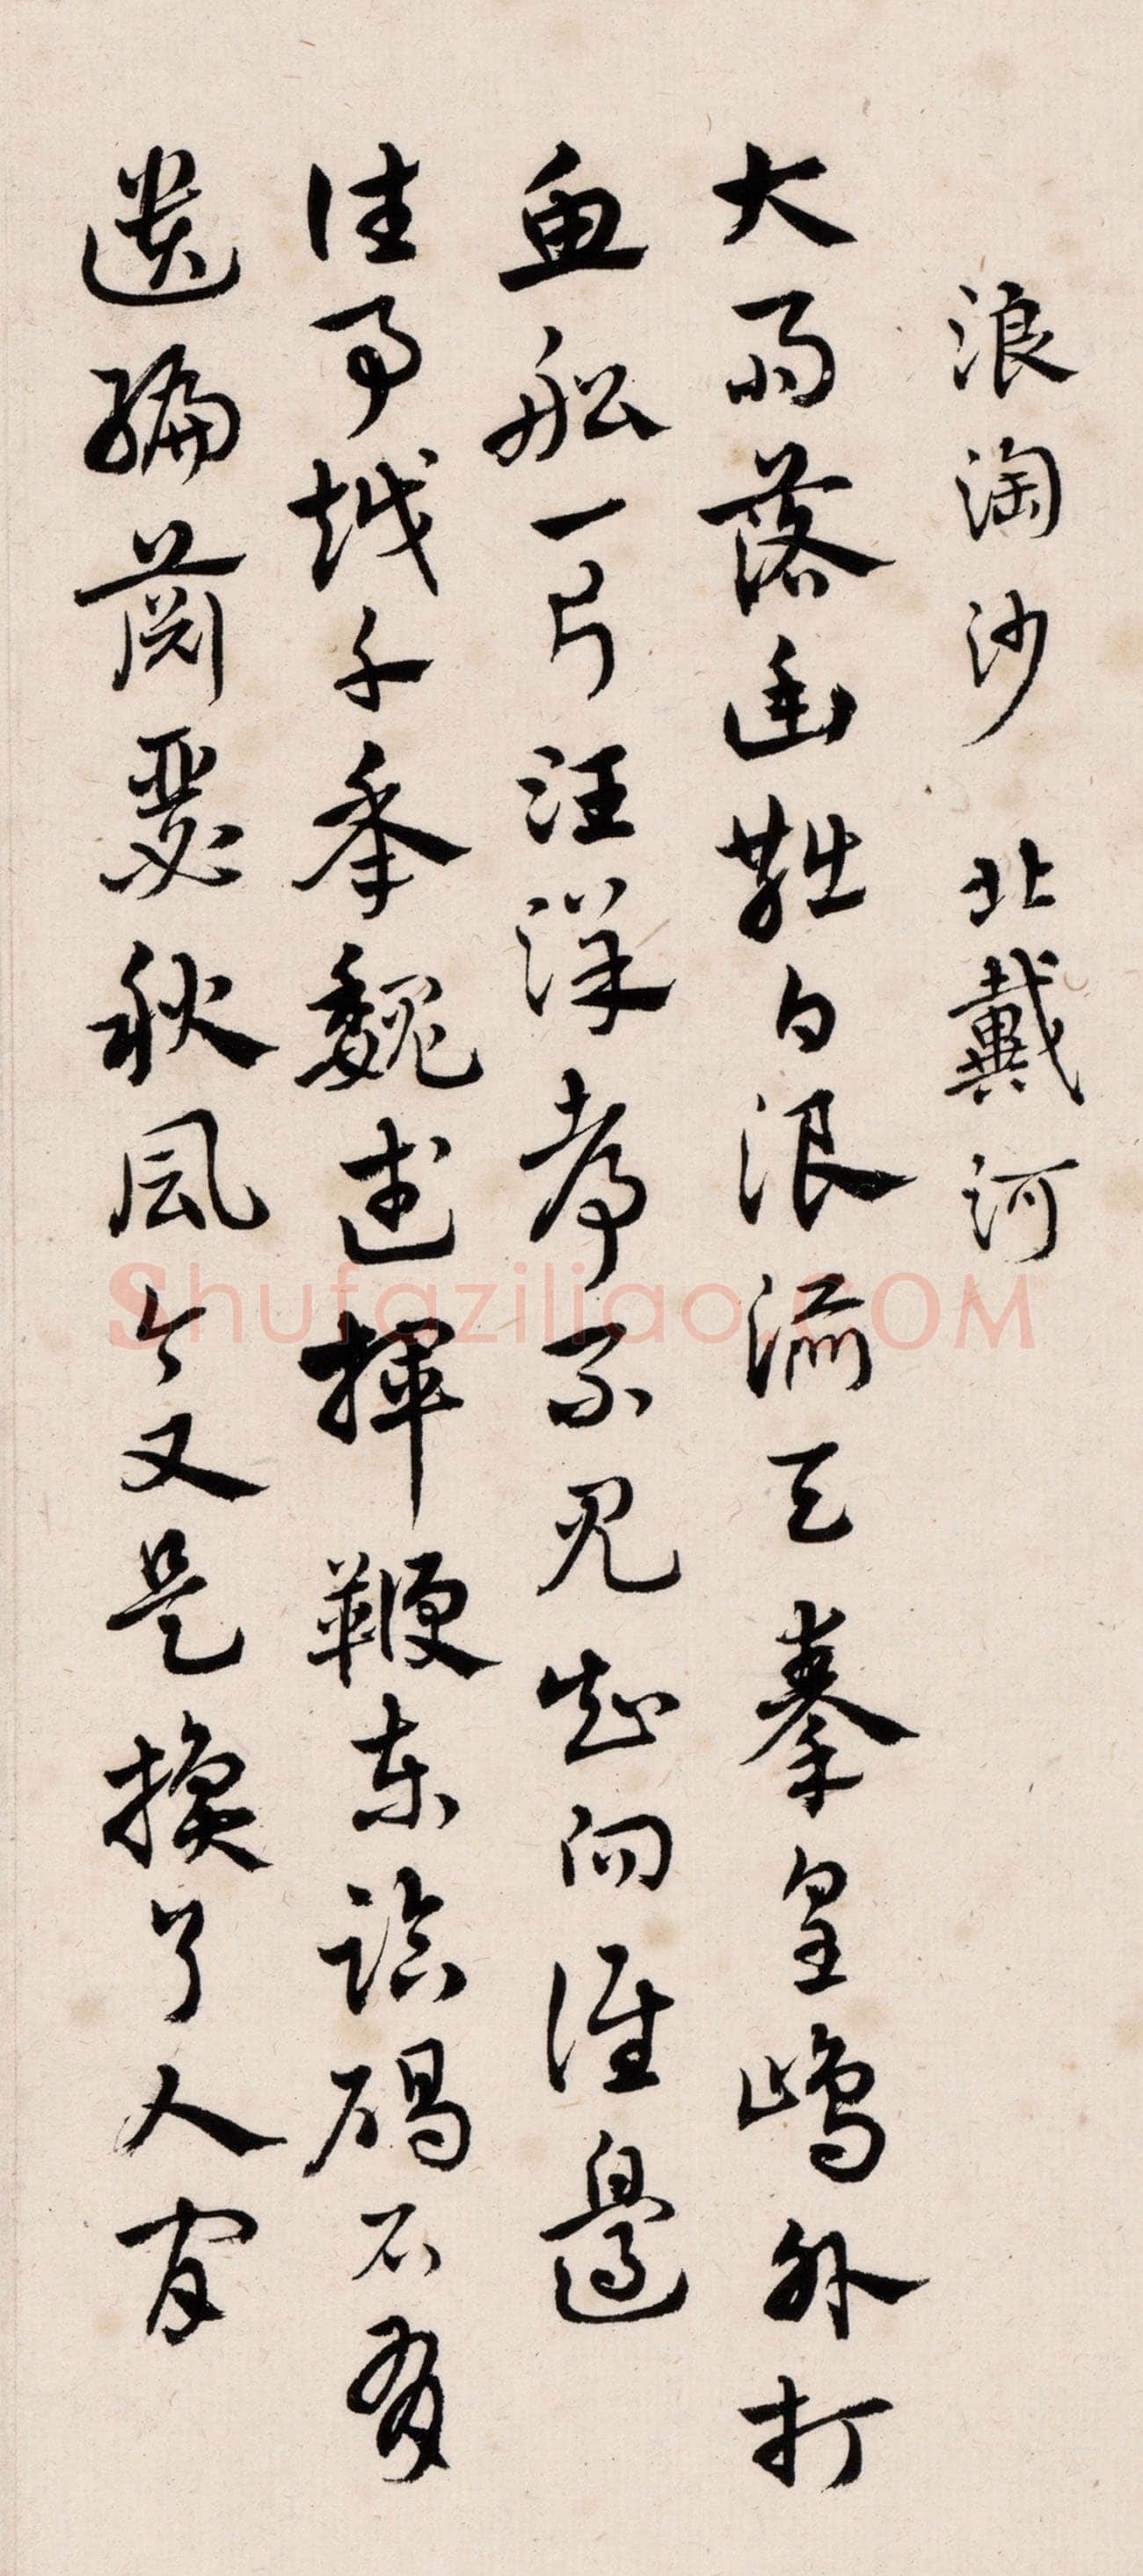 浪淘沙 北戴河
大雨落幽燕白浪滔天秦皇島外打
魚船一片汪洋都不見知向誰邊
往事越千年魏武揮鞭東臨碣石有
遺編蕭瑟秋風今又是換了人間
Shufaziliao.COM